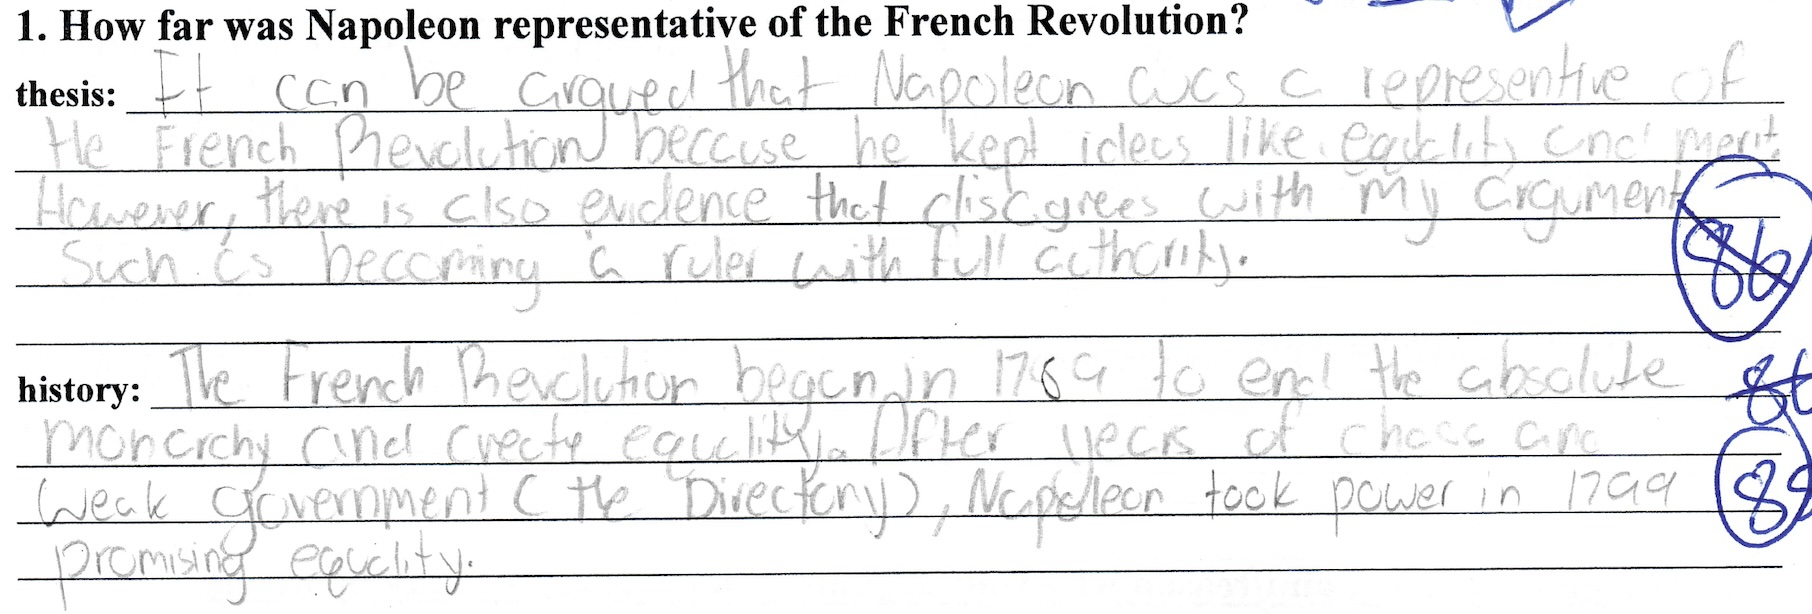 1. How far was Napoleon representative of the French Revolution?
thesis: It can be argued that Napoleon was a representive of
the French Revolution because he kept ideas like equality and merit.
However, there is also evidence that disagrees with my argument
Such as becoming a ruler with full authority.
86
history: The French Revolution began in 1789 to end the absolute
monarchy and create equality. After years of chaos and
weak government (the Directory), Napoleon took power in 1799
promising equality.